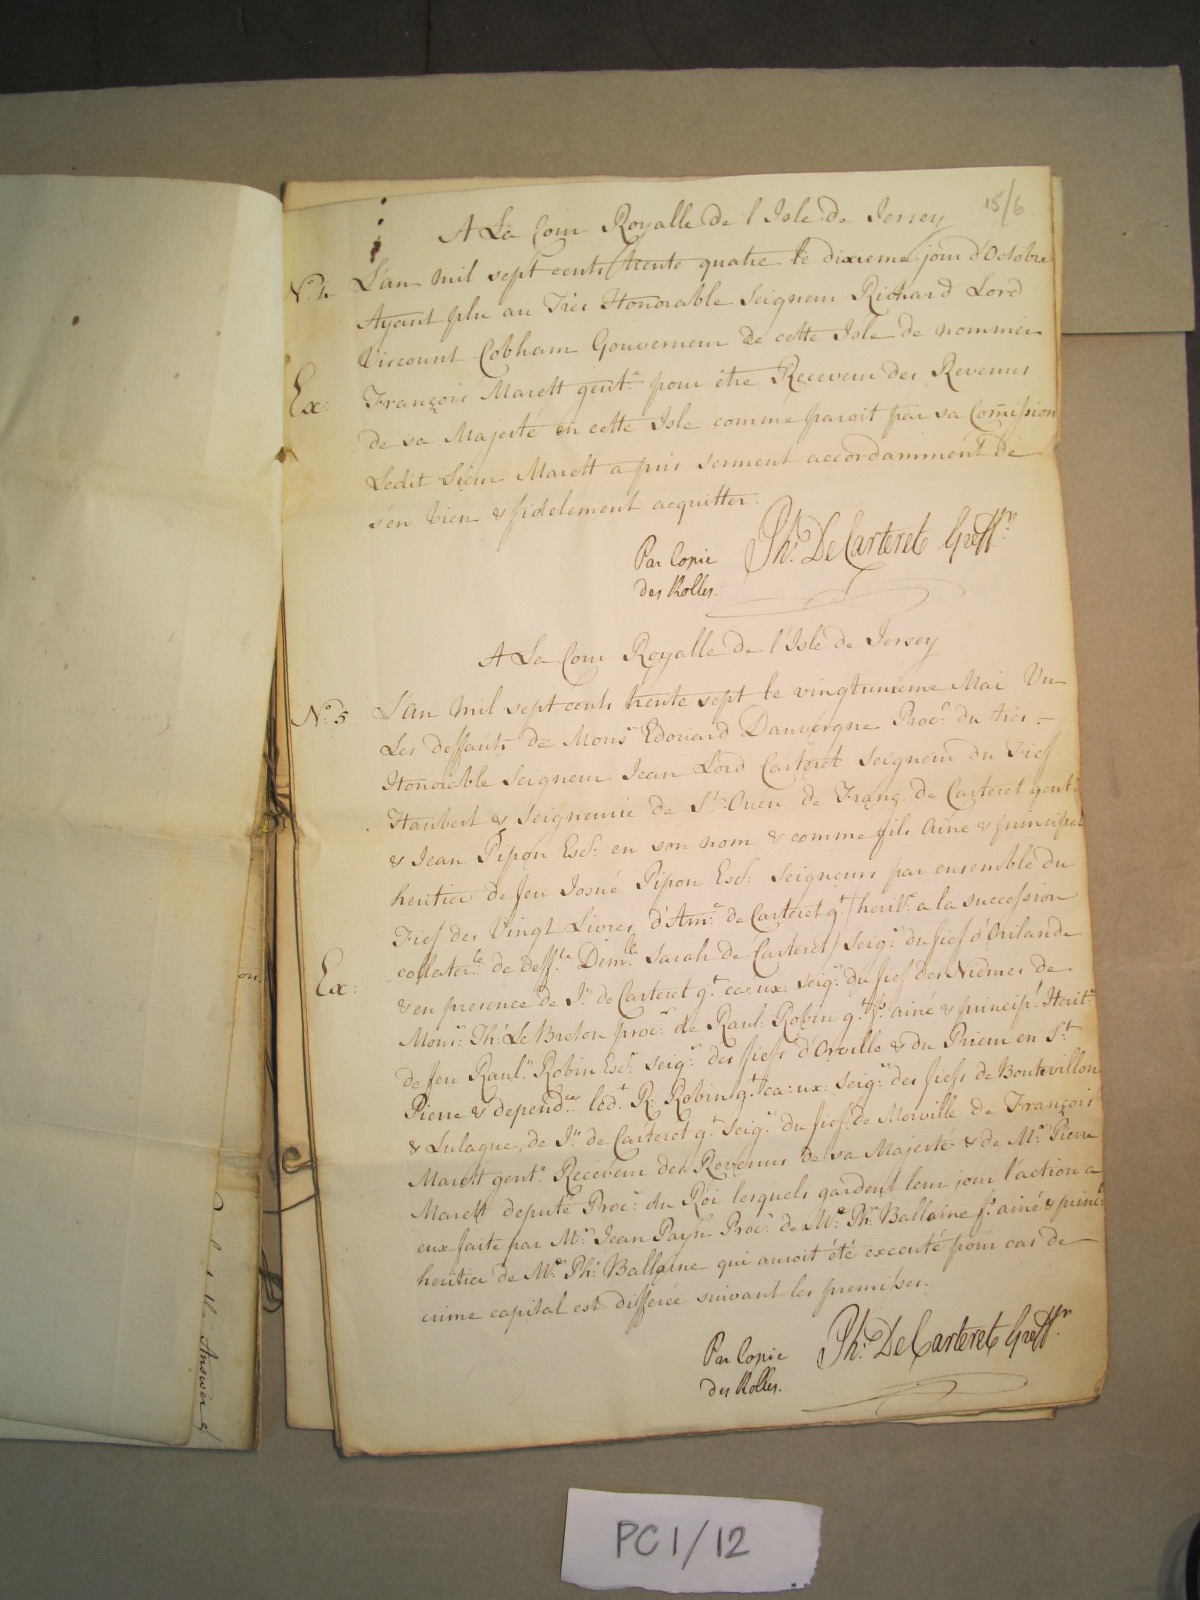 15/6
A La Cour Royalle de l'Isle de Jersey
No. 4 L'an mil sept cents trente quatre le dixieme jour d'Octobre
Ayant plu au Très Honorable Seigneur Richard Lord
Viscount Cobham Gouverneur de cette Isle de nommer
Ex: François Marett gent.n pour être Receveur des Revenus
de sa Majesté en cette Isle comme paroit par sa Com̃ission
Ledit Sieur Marett a pris serment accordamment de
s'en bien & fidelement acquitter.
Par Copie
des Rolles.
Ph: De Carteret Greff.r
A La Cour Royalle de l'Isle de Jersey
No. 5 L'An mil sept cents trente sept le vingtunieme Mai Vu
Les deffauts de Mons.r Edouard Dauvergne Proc.r du très
Honorable Seigneur Jean Lord Carteret Seigneur du Fief
Haubert & Seigneurie de St. Ouen de Franç. de Carteret gent:
& Jean Pipon Esc.r en son nom & comme fils Ainé & principal
heritier de feu Josué Pipon Esc.r Seigneurs par ensemble du
Fief des Vingt Livres, d'Am.e de Carteret g.t (herit.r a la succession
collater.le de deff.te Dem.lle Sarah de Carteret) Seig.r du fief d'Orilande
Ex: & en presence de J.n de Carteret g.t ca: ux: seig.r du fief des Niêmes de
Mons.r Th: Le Breton proc.r de Raul: Robin g.t f.s ainé & princip.l Herit.r
de feu Raul.n Robin Esc.r seig.r des fiefs d'Orville & du Prieur en St.
Pierre & depend.ces led.t R: Robin g.t ca: ux: Seig.r des fiefs de Boutevillon
& Lulague, de J.n de Carteret g.t Seig.r du fief de Morville de François
Marett gent.n Receveur des Revenus de sa Majesté & de M.r Pierre
Marett deputé Proc.r du Roi lesquels gardent leur jour l'action a
eux faite par M.r Jean Payn Proc.r de M.r Ph: Ballaine f.s ainé & princ.l
heritier de M.r Ph: Ballaine qui auroit été executé pour cas de
crime capital est differée suivant les premisses.
Par Copie
des Rolles.
Ph: De Carteret Greff.r
on.
Answer of
PC1/12